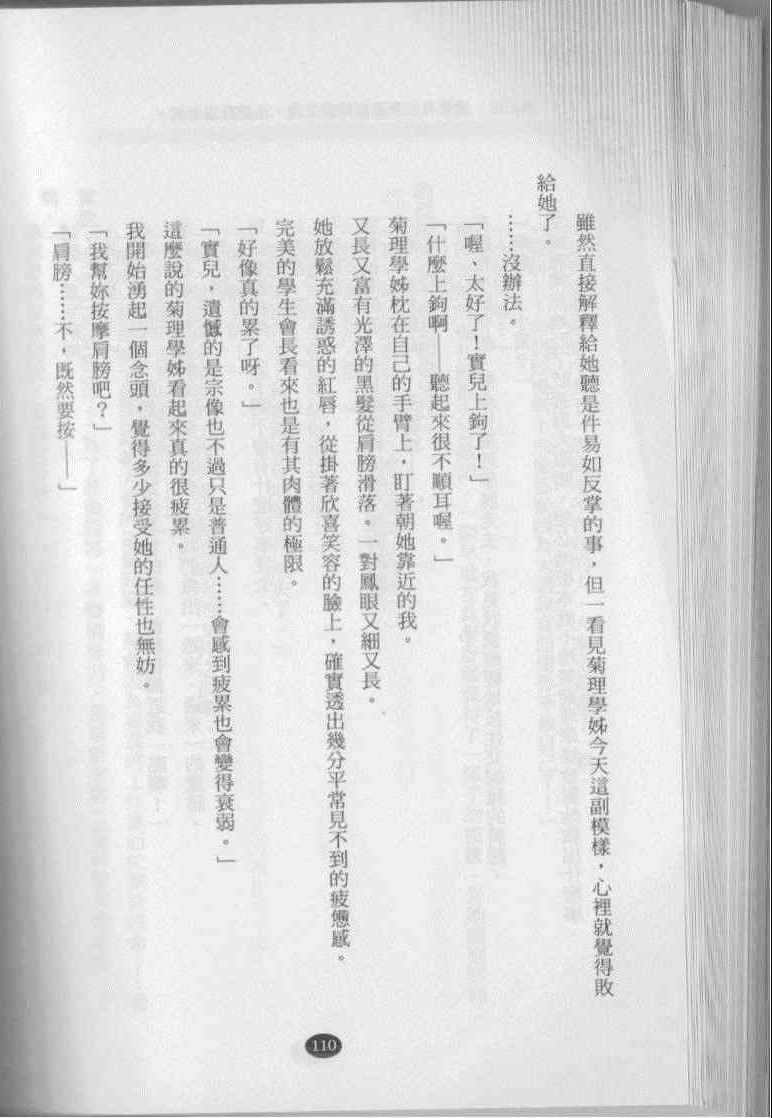 雖然直接解釋給她聽是件易如反掌的事，但一看見菊理學姊今天這副模樣，心裡就覺得敗
給她了。
……沒辦法。
「喔、太好了！實兒上鉤了！」
「什麼上鉤啊——聽起來很不順耳喔。」
菊理學姊枕在自己的手臂上，盯著朝她靠近的我。
又長又富有光澤的黑髮從肩膀滑落。一對鳳眼又細又長。
她放鬆充滿誘惑的紅唇，從掛著欣喜笑容的臉上，確實透出幾分平常見不到的疲憊感。
完美的學生會長看來也是有其肉體的極限。
「好像真的累了呀。」
「實兒，遺憾的是宗像也不過只是普通人……會感到疲累也會變得衰弱。」
這麼說的菊理學姊看起來真的很疲累。
我開始湧起一個念頭，覺得多少接受她的任性也無妨。
「我幫妳按摩肩膀吧？」
「肩膀……不，既然要按——」
110